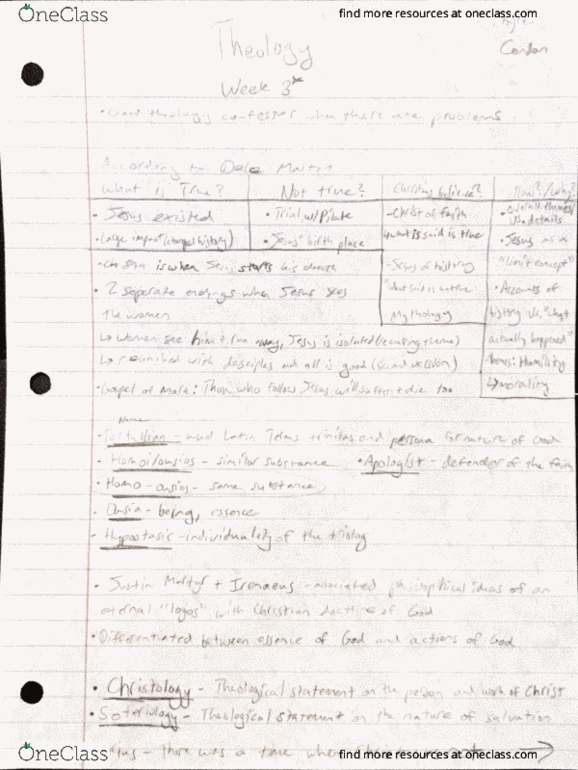 OneClass
find more resources at oneclass.com
Condon
Theology
Week 3*
theology confesses when there are problems
According to Dale Martin
what is True?
Not true?
Christians believe?
How?/why?
• Jesus existed
• Large impact (changed history)
• Trial w/Pilate
• Jesus' birth place
- Christ of faith
what is said is true
- Jesus of history
- Mythology
• Overall themes
Vs. details
• Jesus as a
"limit concept"
• Accounts of
history Vs. "what
actually happened"
Humility
↳ morality
is when Jesus starts his church
• 2 seperate endings when Jesus
the women
↳ women see him + run away, Jesus is isolated (recurring theme)
↳ reunited with desciples and all is good (second version)
• Gospel of Mark: Those who follow Jesus will suffer + die too
Name
• Tertullian - used Latin Terms trinitas and persona for nature of God
• Homoi/ousios - similar substance
• Apologist - defender of the faith
• Homo-ousios - same substance
• Ousia - being, essence
- Hypostasis - individuality of the
• Justin Martyr + Irenaeus - associated philosophical ideas of an
eternal "logos" with Christian doctrine of God
• Differentiated between essence of God and actions of God
• Christology - Theological statement on the person and work of Christ
• Soteriology - Theological statement on the nature of salvation
- there was a time when
→
OneClass
find more resources at oneclass.com